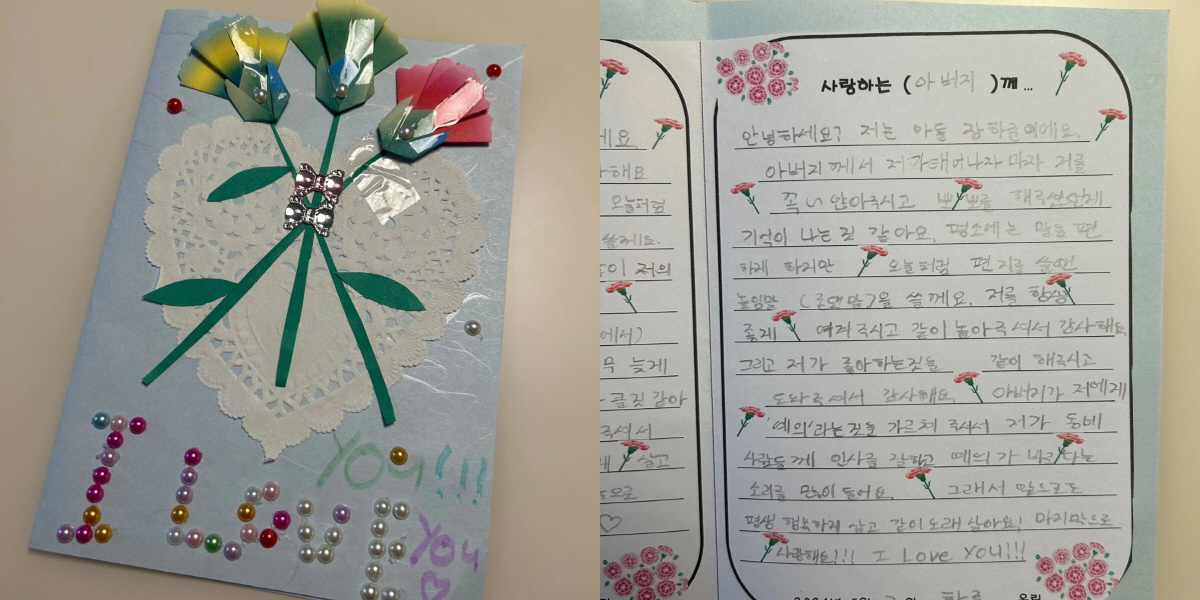 I Love
YOU!!!
You
에요.
해요
오늘처럼
쓸께요.
이 저의
에서)
무 늦게
같아
주셔서
살고
으로
사랑하는 (아버지)께...
안녕하세요? 저는 아들 하준이에요.
아버지께서 저가 태어나자 마자 저를
꼭~ 안아주시고 뽀뽀를 해주셨던게
기억이 나는 것 같아요. 평소에는 말을 편
하게 하지만 오늘처럼 편지를 쓸땐
높임말 (존댓말)을 쓸께요. 저를 항상
좋게 여겨주시고 같이 놀아주셔서 감사해요.
그리고 저가 좋아하는것을 같이 해주시고
도와주셔서 감사해요. 아버지가 저에게
'예의'라는것을 가르쳐 주셔서 저가 동네
사람들께 인사를 잘하고 예의가 바르다는
소리를 많이 들어요. 그래서 앞으로도
평생 행복하게 살고 같이 오래 살아요! 마지막으로
사랑해요!!! I Love You!!!
올림